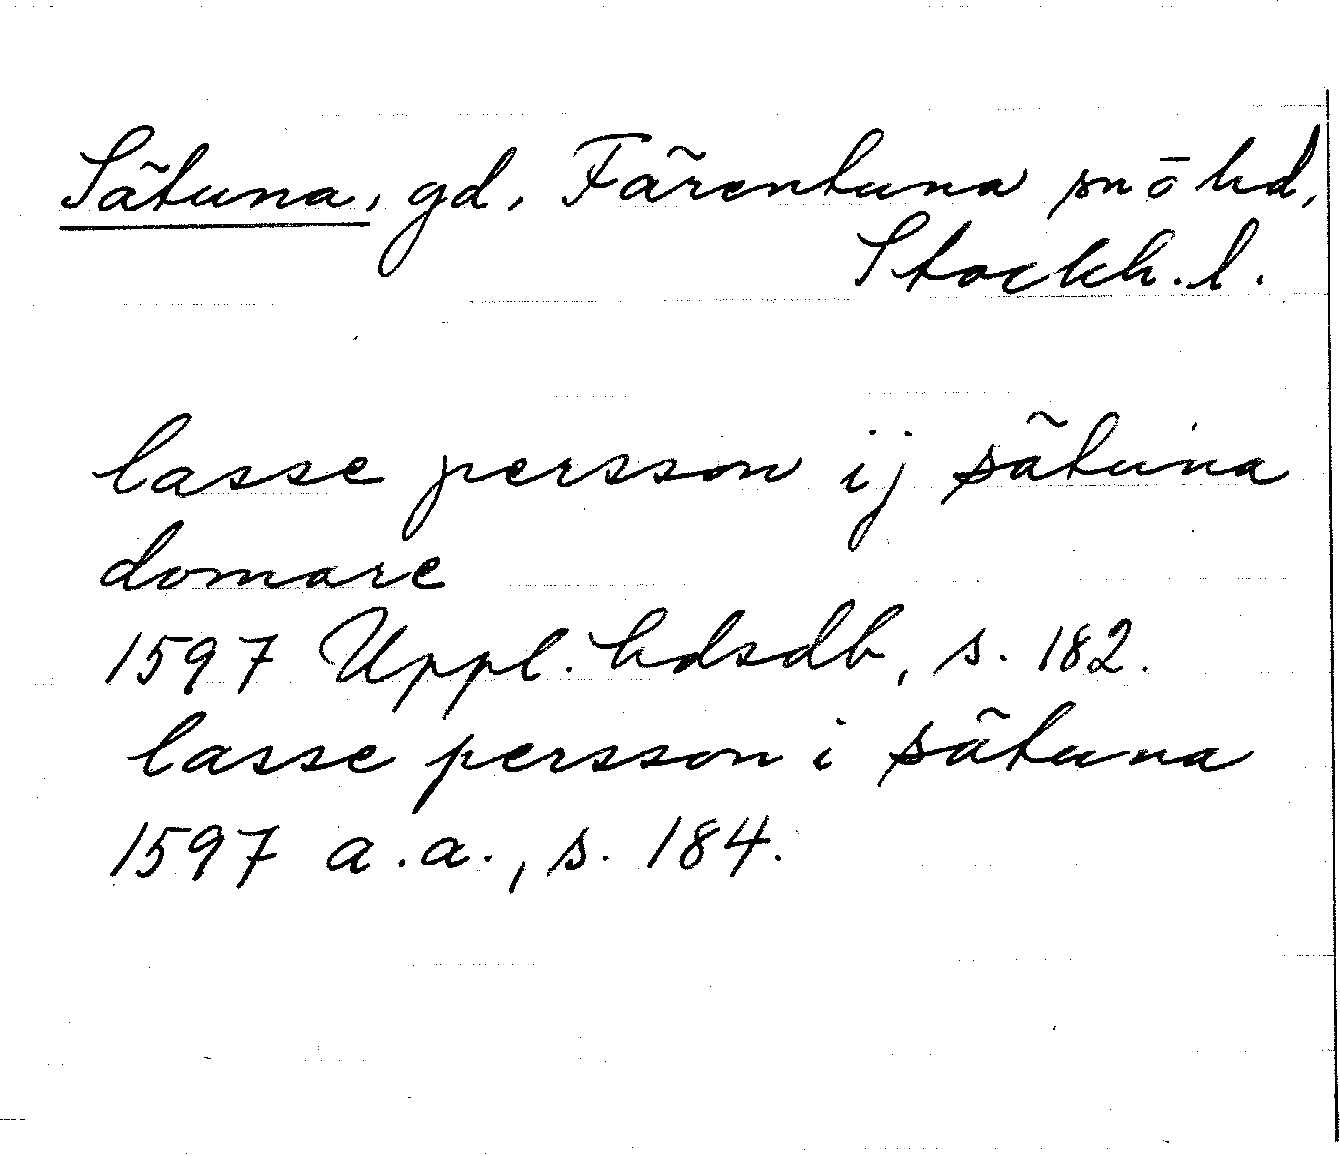 Sätuna, gd, Färentuna sn ō hd,
Stockh. l.
lasse persson ij sätuna
domare
1597 Uppl. hdsdb, s. 182.
lasse persson i sätuna
1597 a.a., s. 184.